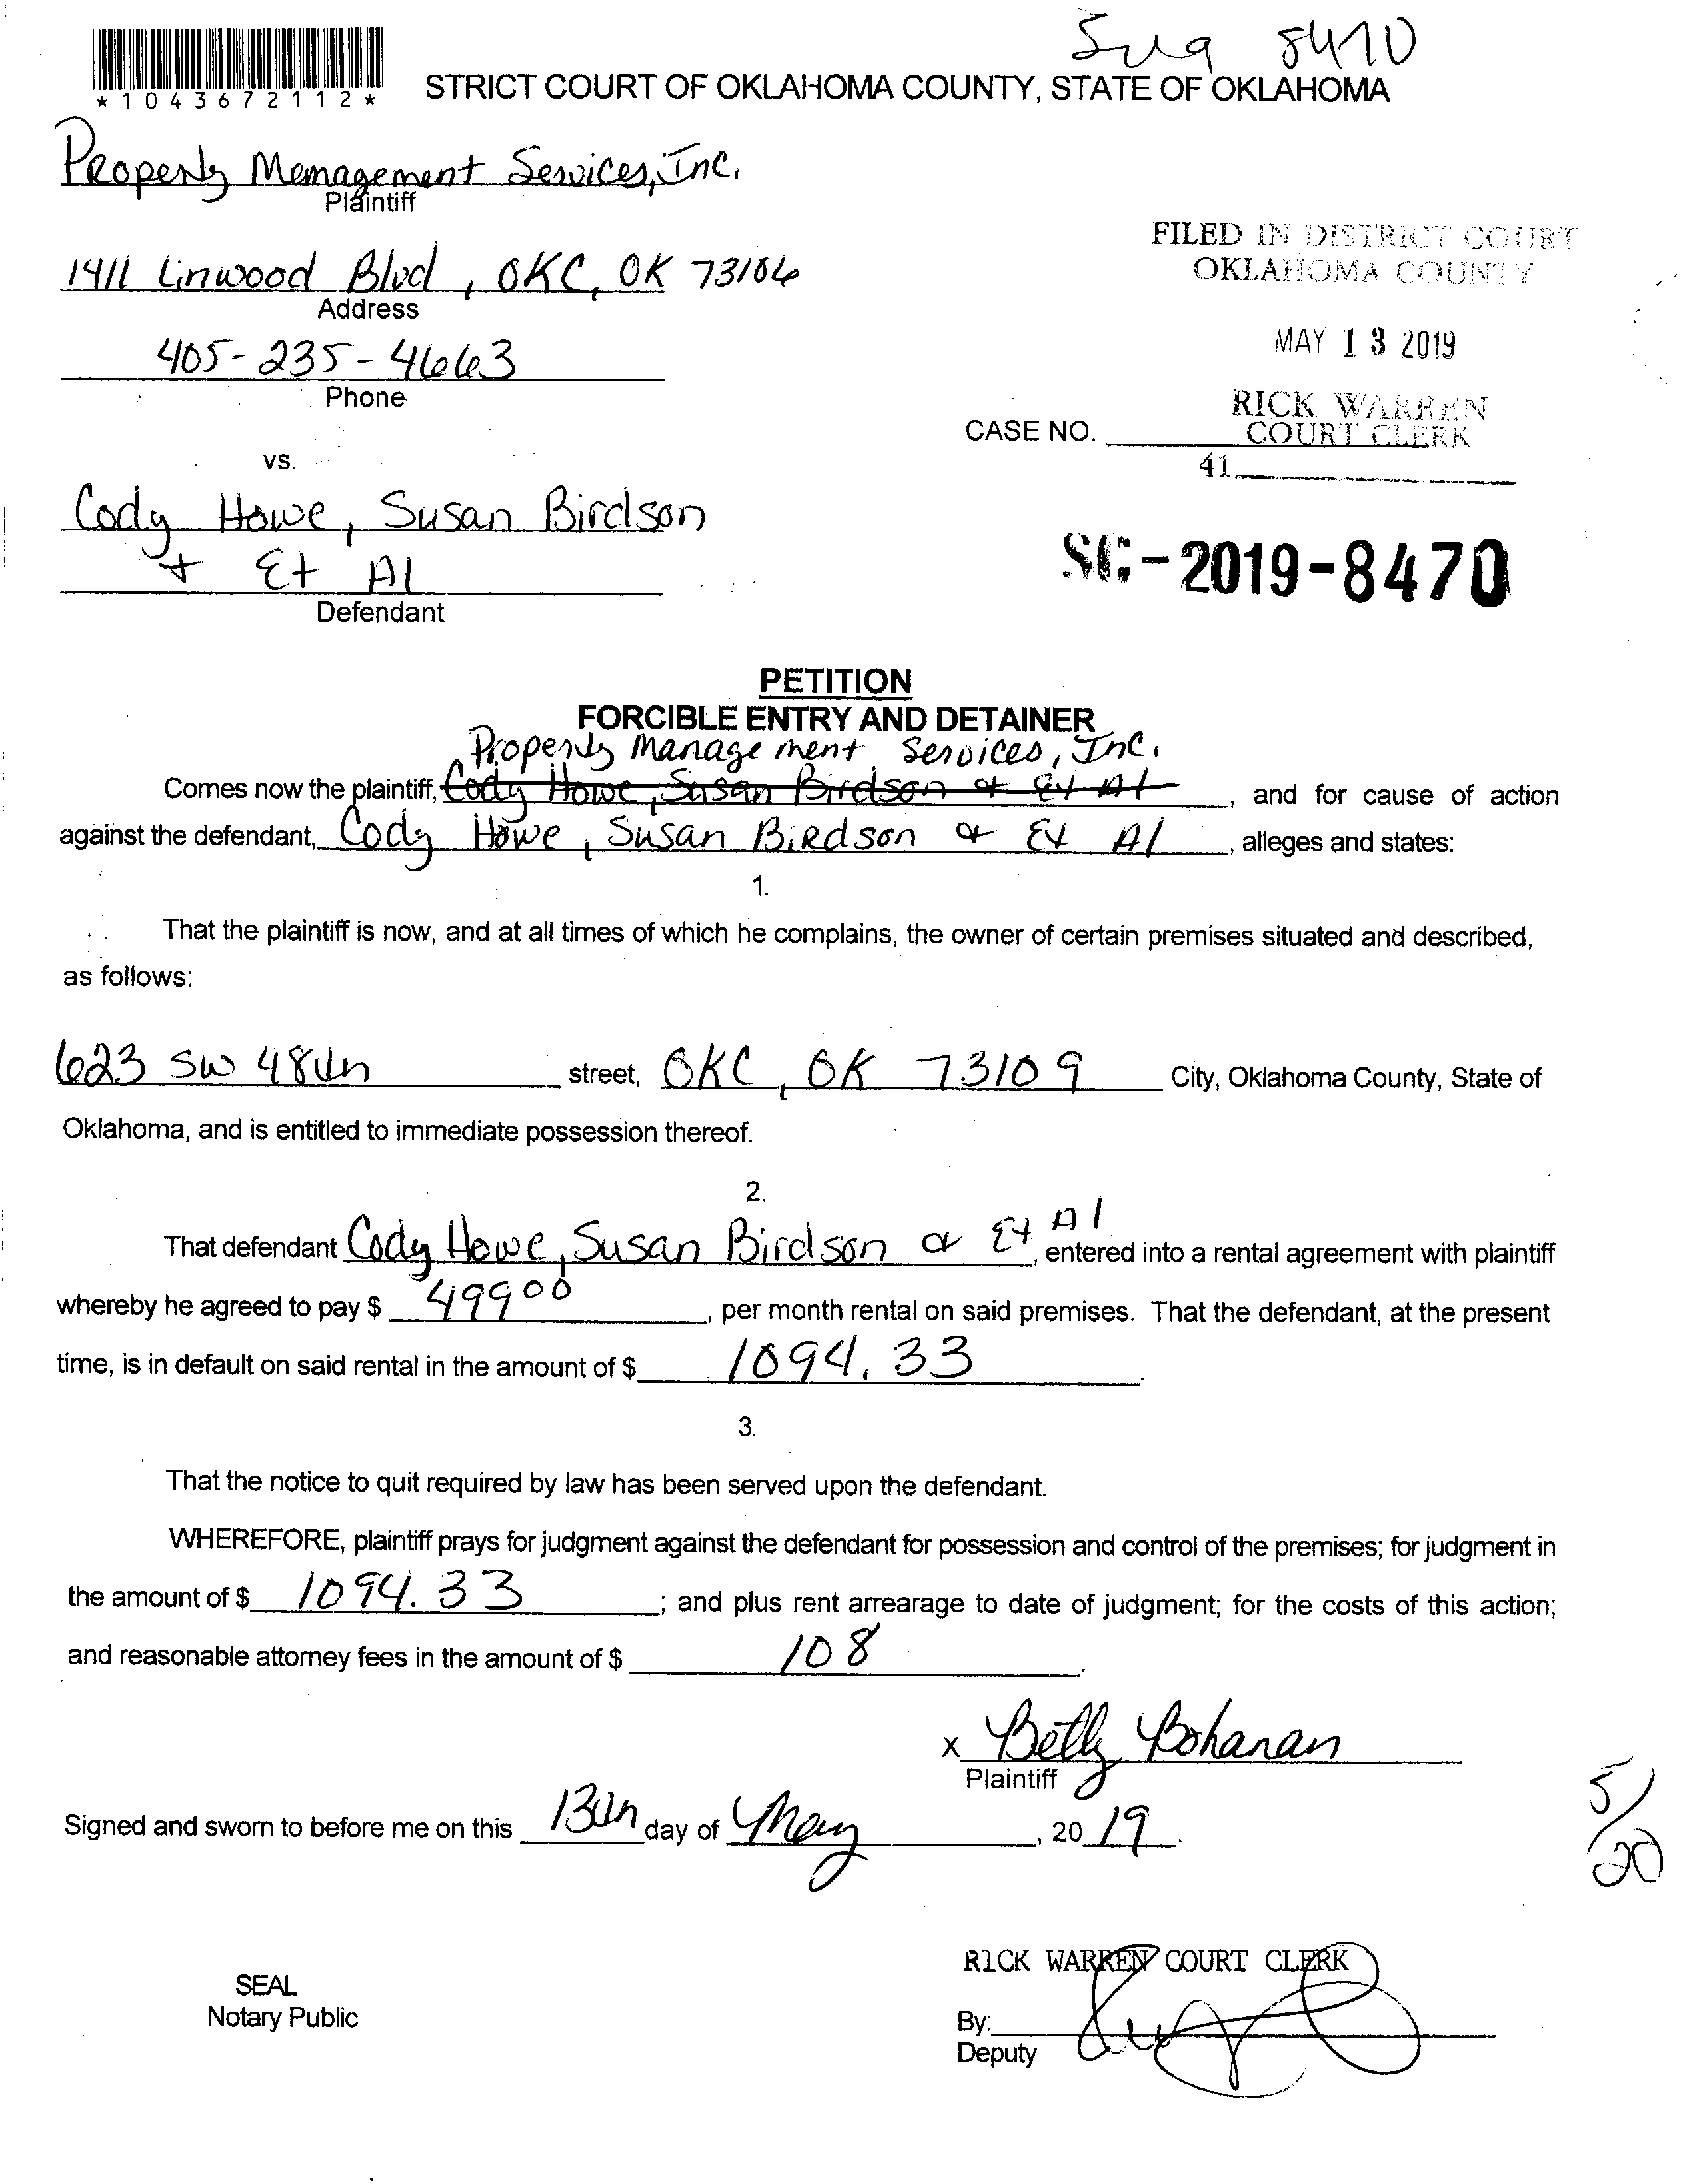 Sug 8470
*1043672112*
STRICT COURT OF OKLAHOMA COUNTY, STATE OF OKLAHOMA
Property Management Services, Inc.
Plaintiff
1411 Linwood Blvd, OKC, OK 73106
Address
405-235-4663
Phone
FILED IN DISTRICT COURT
OKLAHOMA COUNTY
MAY 13 2019
RICK WARREN
COURT CLERK
CASE NO.
41
vs.
Cody Howe, Susan Birdson
+ Et Al
Defendant
SC-2019-8470
PETITION
FORCIBLE ENTRY AND DETAINER
Property Management Services, Inc.
Comes now the plaintiff, Cody Howe, Susan Birdson & Et Al, and for cause of action
against the defendant, Cody Howe, Susan Birdson & Et Al, alleges and states:
1.
That the plaintiff is now, and at all times of which he complains, the owner of certain premises situated and described,
as follows:
623 SW 48th street, OKC, OK 73109 City, Oklahoma County, State of
Oklahoma, and is entitled to immediate possession thereof.
2.
That defendant Cody Howe, Susan Birdson & Et Al, entered into a rental agreement with plaintiff
whereby he agreed to pay $ 499 00, per month rental on said premises. That the defendant, at the present
time, is in default on said rental in the amount of $ 1094.33.
3.
That the notice to quit required by law has been served upon the defendant.
WHEREFORE, plaintiff prays for judgment against the defendant for possession and control of the premises; for judgment in
the amount of $ 1094.33; and plus rent arrearage to date of judgment; for the costs of this action;
and reasonable attorney fees in the amount of $ 108.
x Betty Bohanan
Plaintiff
Signed and sworn to before me on this 13th day of May, 2019.
5/20
RICK WARREN COURT CLERK
SEAL
Notary Public
By:
Deputy